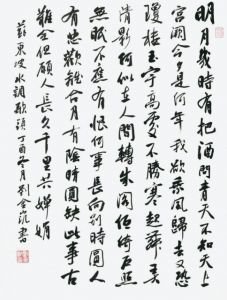 明月幾時有把酒問青天不知天上
宮闕今夕是何年我欲乘風歸去又恐
瓊樓玉宇高處不勝寒起舞弄
清影何似在人間轉朱閣低綺戶照
無眠不應有恨何事長向別時圓人
有悲歡離合月有陰晴圓缺此事古
難全但願人長久千里共嬋娟
蘇東坡水調歌頭丁酉冬月劉金書